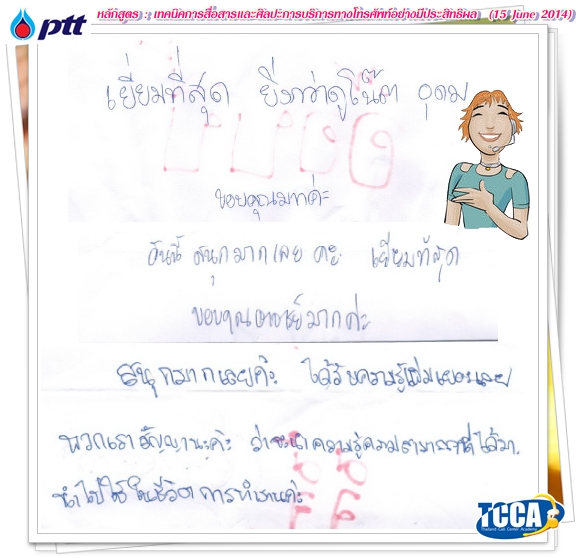 ptt
หลักสูตร : เทคนิคการสื่อสารและศิลปะการบริการทางโทรศัพท์อย่างมีประสิทธิผล (15 June 2014)
เยี่ยมที่สุด ยิ่งกว่าดูโน๊ต อุดม
ขอบคุณมากค่ะ
วันนี้ สนุกมากเลย คะ เยี่ยมที่สุด
ขอบคุณอาจารย์มากค่ะ
สนุกมากเลยค๊ะ ได้รับความรู้เยอะเลย
พวกเราสัญญานะค๊ะ ว่าจะนำความรู้ความสามารถที่ได้มา
นำไปใช้ในชีวิตการทำงานค่ะ
TCCA
Thailand Call Center Academy